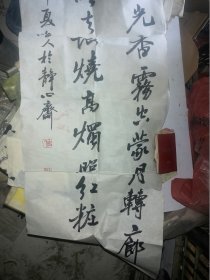 光香霧空蒙月轉廊
燒高燭照紅妝
夏
人於靜心齋